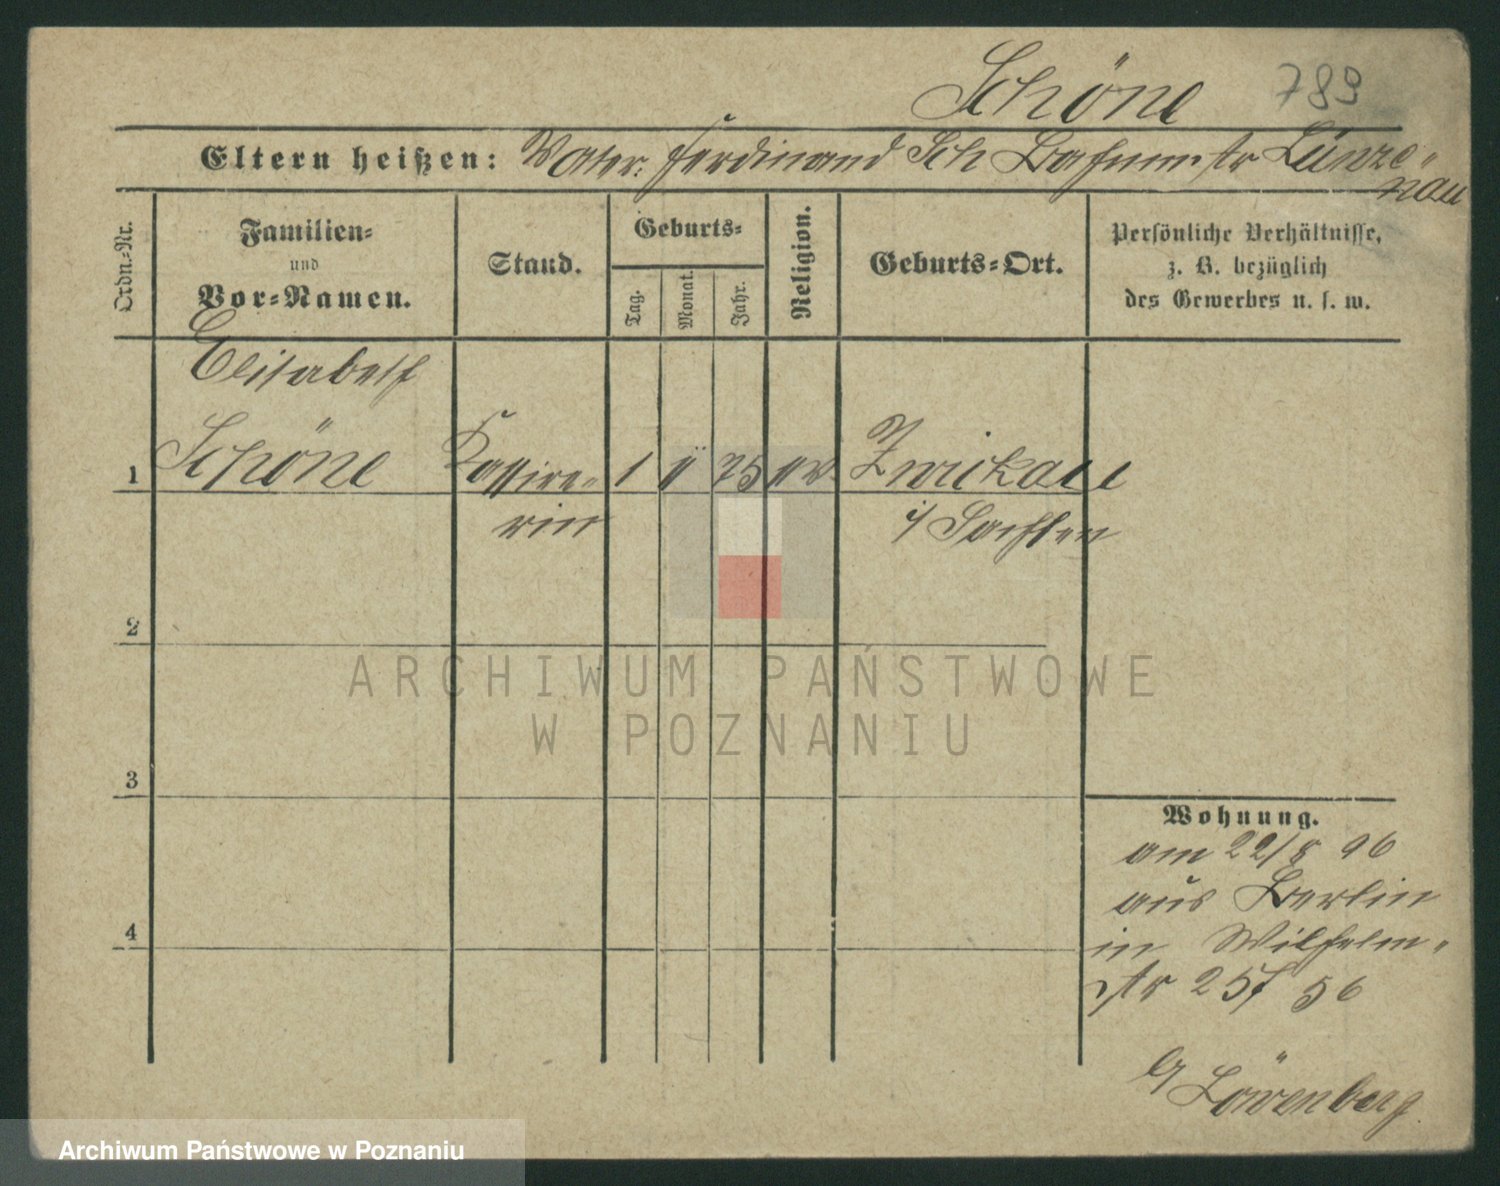 Schöne 789
Eltern heißen: Vater: Ferdinand Sch Bahnmstr Lunze-
nau
Ordn.-Nr.
Familien-
und
Vor-Namen.
Stand.
Geburts-
Tag.
Monat.
Jahr.
Religion.
Geburts-Ort.
Persönliche Verhältnisse,
z. B. bezüglich
des Gewerbes u. s. w.
Elisabeth
1 Schöne Kassire- 1 75 Zwickau
rin i/ Sachsen
2
3
4
Wohnung.
am 22/8 96
aus Berlin
in Wilhelm-
str 25 56
b/ Lövenberg
ARCHIWUM PAŃSTWOWE
W POZNANIU
Archiwum Państwowe w Poznaniu